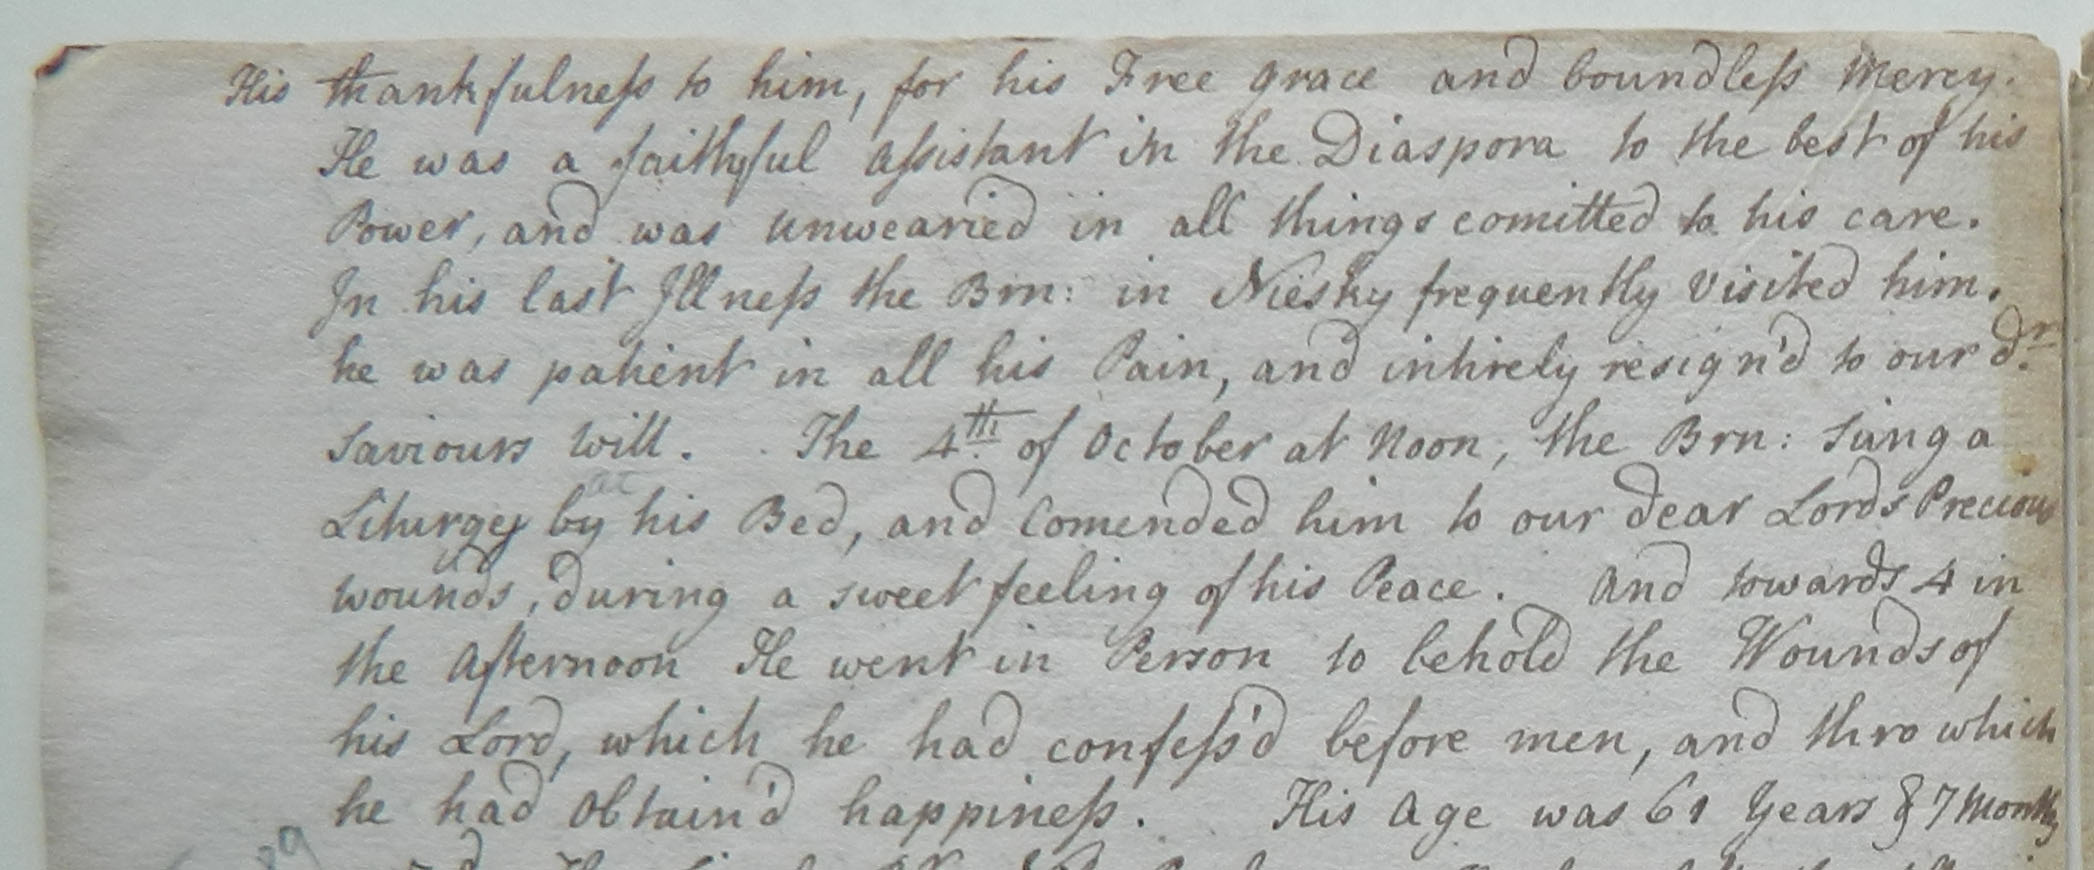 His thankfulneſs to him, for his Free grace and boundleſs Mercy.
He was a faithful aſsistant in the Diaspora to the best of his
Power, and was unwearied in all things comitted to his care.
In his last Illneſs the Brn: in Niesky frequently visited him.
he was patient in all his Pain, and intirely resign'd to our dr.
Saviours will. The 4th. of October at Noon, the Brn: sung a
at
Liturgey by his Bed, and Comended him to our dear Lords Precious
wounds, during a sweet feeling of his Peace. And towards 4 in
the Afternoon He went in Person to behold the Wounds of
his Lord, which he had confeſs'd before men, and thro which
he had obtain'd happineſs. His Age was 61 Years & 7 Months